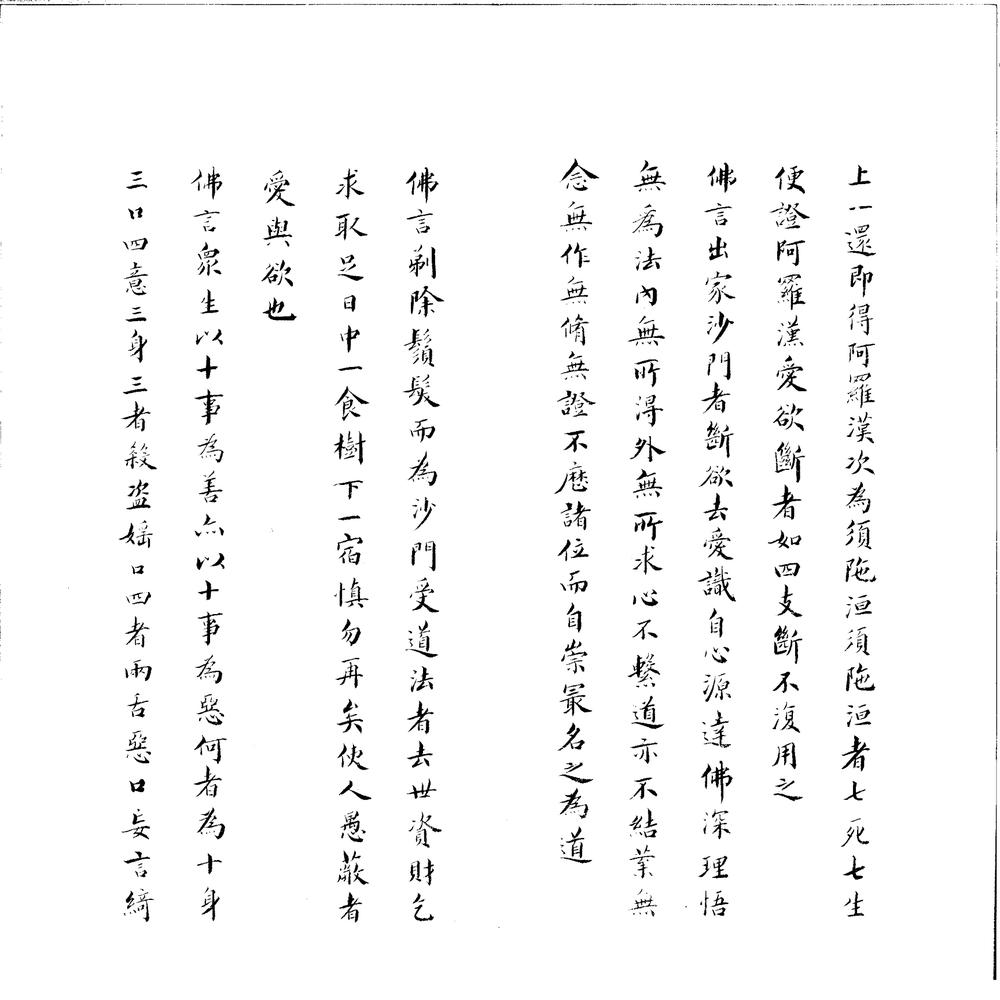 上一還即得阿羅漢次為須陁洹須陁洹者七死七生
便證阿羅漢愛欲斷者如四支斷不復用之
佛言出家沙門者斷欲去愛識自心源達佛深理悟
無為法內無所得外無所求心不繫道亦不結業無
念無作無脩無證不歷諸位而自崇最名之為道
佛言剃除鬚髮而為沙門受道法者去世資財乞
求取足日中一食樹下一宿慎勿再矣使人愚蔽者
愛與欲也
佛言眾生以十事為善亦以十事為惡何者為十身
三口四意三身三者殺盜婬口四者兩舌惡口妄言綺